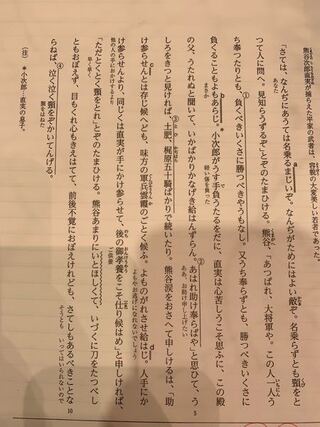 熊谷次郎直実が捕らえた平家の武者は、容貌の大変美しい若者であった。
「さては、なんぢにあうては名乗るまじいぞ。なんぢがためにはよい敵ぞ。名乗らずとも頸をと
つて人に問へ。見知らうずるぞ」とぞのたまひける。熊谷、「あつぱれ、大将軍や。この人一人う
ち奉つたりとも、①負くべきいくさに勝つべきやうもなし。又うち奉らずとも、勝つべきいくさに
負くることもよもあらじ。*小次郎がうす手負うたるをだに、直実は心苦しうこそ思ふに、この殿
の父、うたれぬと聞いて、いかばかりかなげき給はんずらん。②あはれ助け奉らばや」と思ひて、う
しろをきつと見ければ、③土肥・梶原五十騎ばかりで続いたり。熊谷涙をおさへて申しけるは、「助
け参らせんとは存じ候へども、味方の軍兵雲霞のごとく候ふ。よものがれさせ給はじ。人手にか
け参らせんより、同じくは直実が手にかけ参らせて、後の御孝養をこそ仕り候はめ」と申しければ、
「ただとくとく頸をとれ」とぞのたまひける。熊谷あまりにいとほしくて、いづくに刀をたつべし
ともおぼえず、目もくれ心もきえはてて、前後不覚におぼえけれども、さてしもあるべきことな
らねば、④泣く泣く頸をぞかいてんげる。
(注) *小次郎…直実の息子。